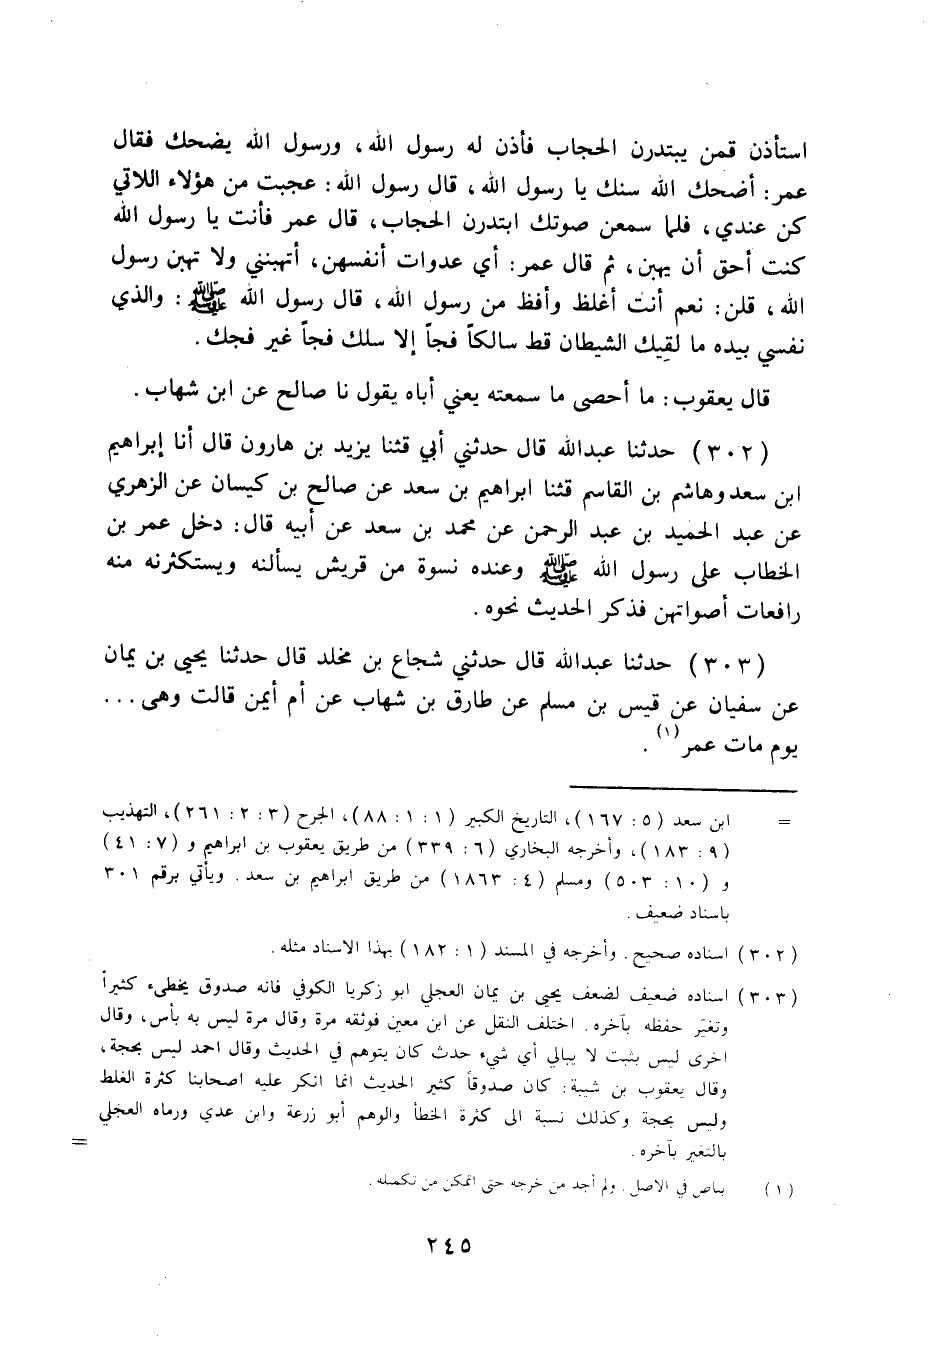 استأذن قمن يبتدرن الحجاب فأذن له رسول الله، ورسول الله يضحك فقال
عمر: أضحك الله سنك يا رسول الله، قال رسول الله: عجبت من هؤلاء اللاتي
كن عندي، فلما سمعن صوتك ابتدرن الحجاب، قال عمر فأنت يا رسول الله
كنت أحق أن يهبن، ثم قال عمر: أي عدوات أنفسهن، أتهبنني ولا تهبن رسول
الله، قلن: نعم أنت أغلظ وأفظ من رسول الله، قال رسول الله ﷺ: والذي
نفسي بيده ما لقيك الشيطان قط سالكاً فجاً إلا سلك فجاً غير فجك.
قال يعقوب: ما أحصى ما سمعته يعني أباه يقول نا صالح عن ابن شهاب.
(٣٠٢) حدثنا عبدالله قال حدثني أبي قثنا يزيد بن هارون قال أنا إبراهيم
ابن سعد وهاشم بن القاسم قثنا ابراهيم بن سعد عن صالح بن كيسان عن الزهري
عن عبد الحميد بن عبد الرحمن عن محمد بن سعد عن أبيه قال: دخل عمر بن
الخطاب على رسول الله ﷺ وعنده نسوة من قريش يسألنه ويستكثرنه منه
رافعات أصواتهن فذكر الحديث نحوه.
(٣٠٣) حدثنا عبدالله قال حدثني شجاع بن مخلد قال حدثنا يحيى بن يمان
عن سفيان عن قيس بن مسلم عن طارق بن شهاب عن أم أيمن قالت وهى...
يوم مات عمر(١).
= ابن سعد (٥: ١٦٧)، التاريخ الكبير (١: ١: ٨٨)، الجرح (٣: ٢: ٢٦١)، التهذيب
(٩: ١٨٣)، وأخرجه البخاري (٦: ٣٣٩) من طريق يعقوب بن ابراهيم و (٧: ٤١)
و (١٠: ٥٠٣) ومسلم (٤: ١٨٦٣) من طريق ابراهيم بن سعد. ويأتي برقم ٣٠١
باسناد ضعيف.
(٣٠٢) اسناده صحيح. وأخرجه في المسند (١: ١٨٢) بهذا الاسناد مثله.
(٣٠٣) اسناده ضعيف لضعف يحيى بن يمان العجلي ابو زكريا الكوفي فانه صدوق يخطىء كثيراً
وتغيّر حفظه بآخره. اختلف النقل عن ابن معين فوثقه مرة وقال مرة ليس به بأس، وقال
اخرى ليس بثبت لا يبالي أي شيء حدث كان يتوهم في الحديث وقال احمد ليس بحجة،
وقال يعقوب بن شيبة: كان صدوقاً كثير الحديث انما انكر عليه اصحابنا كثرة الغلط
وليس بحجة وكذلك نسبة الى كثرة الخطأ والوهم أبو زرعة وابن عدي ورماه العجلي
بالتغير بآخره. =
(١) بياض في الاصل. ولم أجد من خرجه حتى اتمكن من تكمله.
٢٤٥